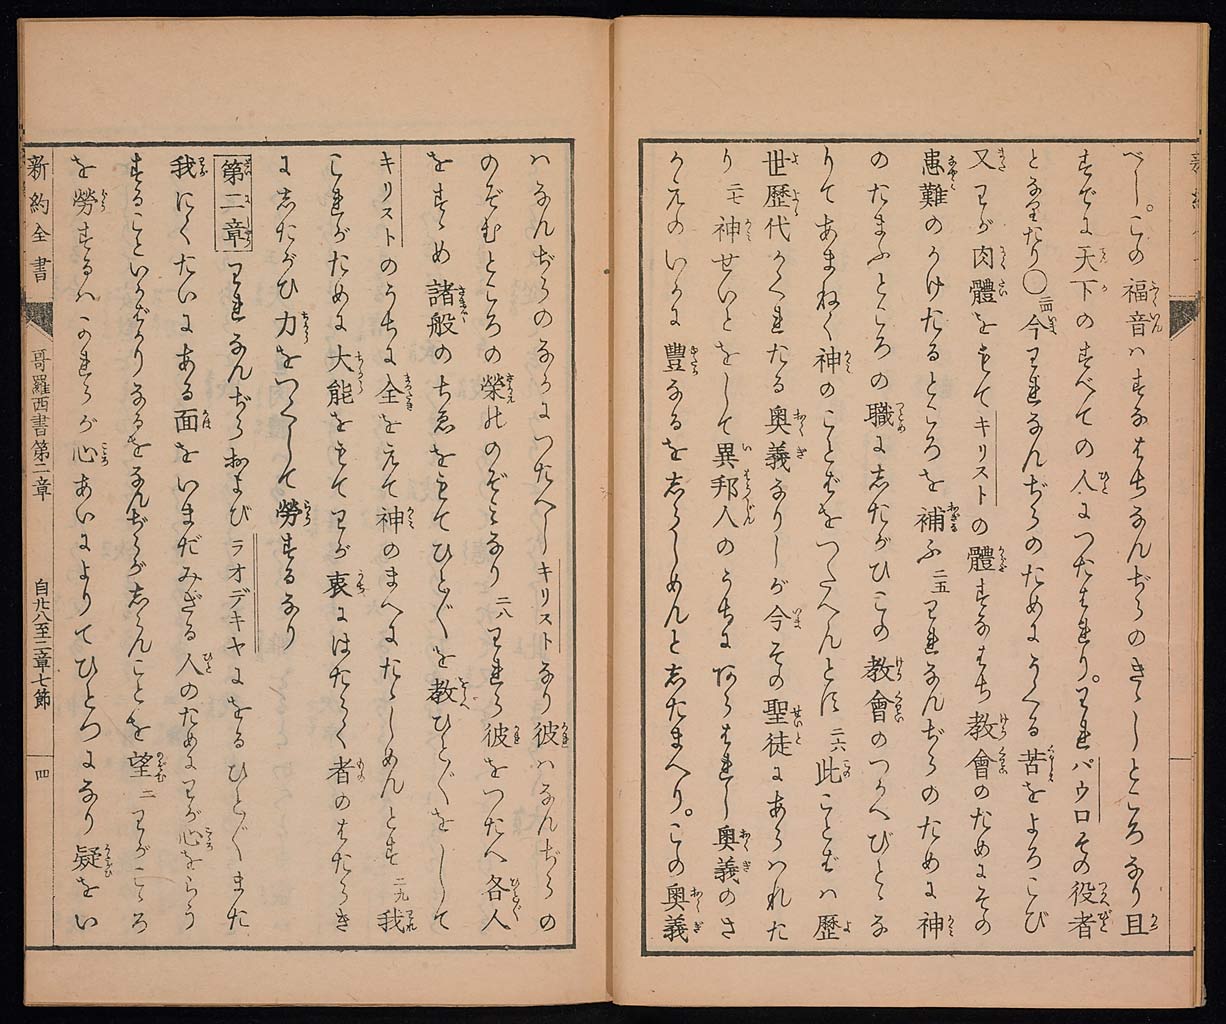 べし。この福音ハすなはちなんぢらのきゝしところなり且
すでに天下のすべての人につたはれり。われパウロその役者
となりたり〇二四今われなんぢらのためにうくる苦をよろこび
又わが肉體をもてキリストの體すなはち教會のためにその
患難のかけたるところを補ふ二五われなんぢらのために神
のたまふところの職にしたがひこの教會のつかへびとゝな
りてあまねく神のことばをつたへんとす二六此ことばハ歷
世歷代かくれたる奧義なりしが今その聖徒にあらハれた
り二七神せいとをして異邦人のうちにあらはれし奧義のさ
かえのいかに豊なるをしらしめんとしたまへり。この奧義
ハなんぢらのなかにつたへしキリストなり彼ハなんぢらの
のぞむところの榮光ののぞみなり二八われら彼をつたへ各人
をすゝめ諸般のちゑをもてひとびとを教ひとびとをして
キリストのうちに全をえて神のまへにたゝしめんとす二九我
これがために大能をもてわが衷にはたらく者のはたらき
にしたがひ力をつくして勞するなり
第二章われなんぢらおよびラオデキヤにをるひとびとまた
我にくたいにある面をいまだみざる人のためにわが心をらう
することいかばかりなるをなんぢらがしらんことを望二わがこゝろ
を勞するハかれらが心あいによりてひとつになり疑をい
新約全書
哥羅西書第二章
自廿八至二章七節
四